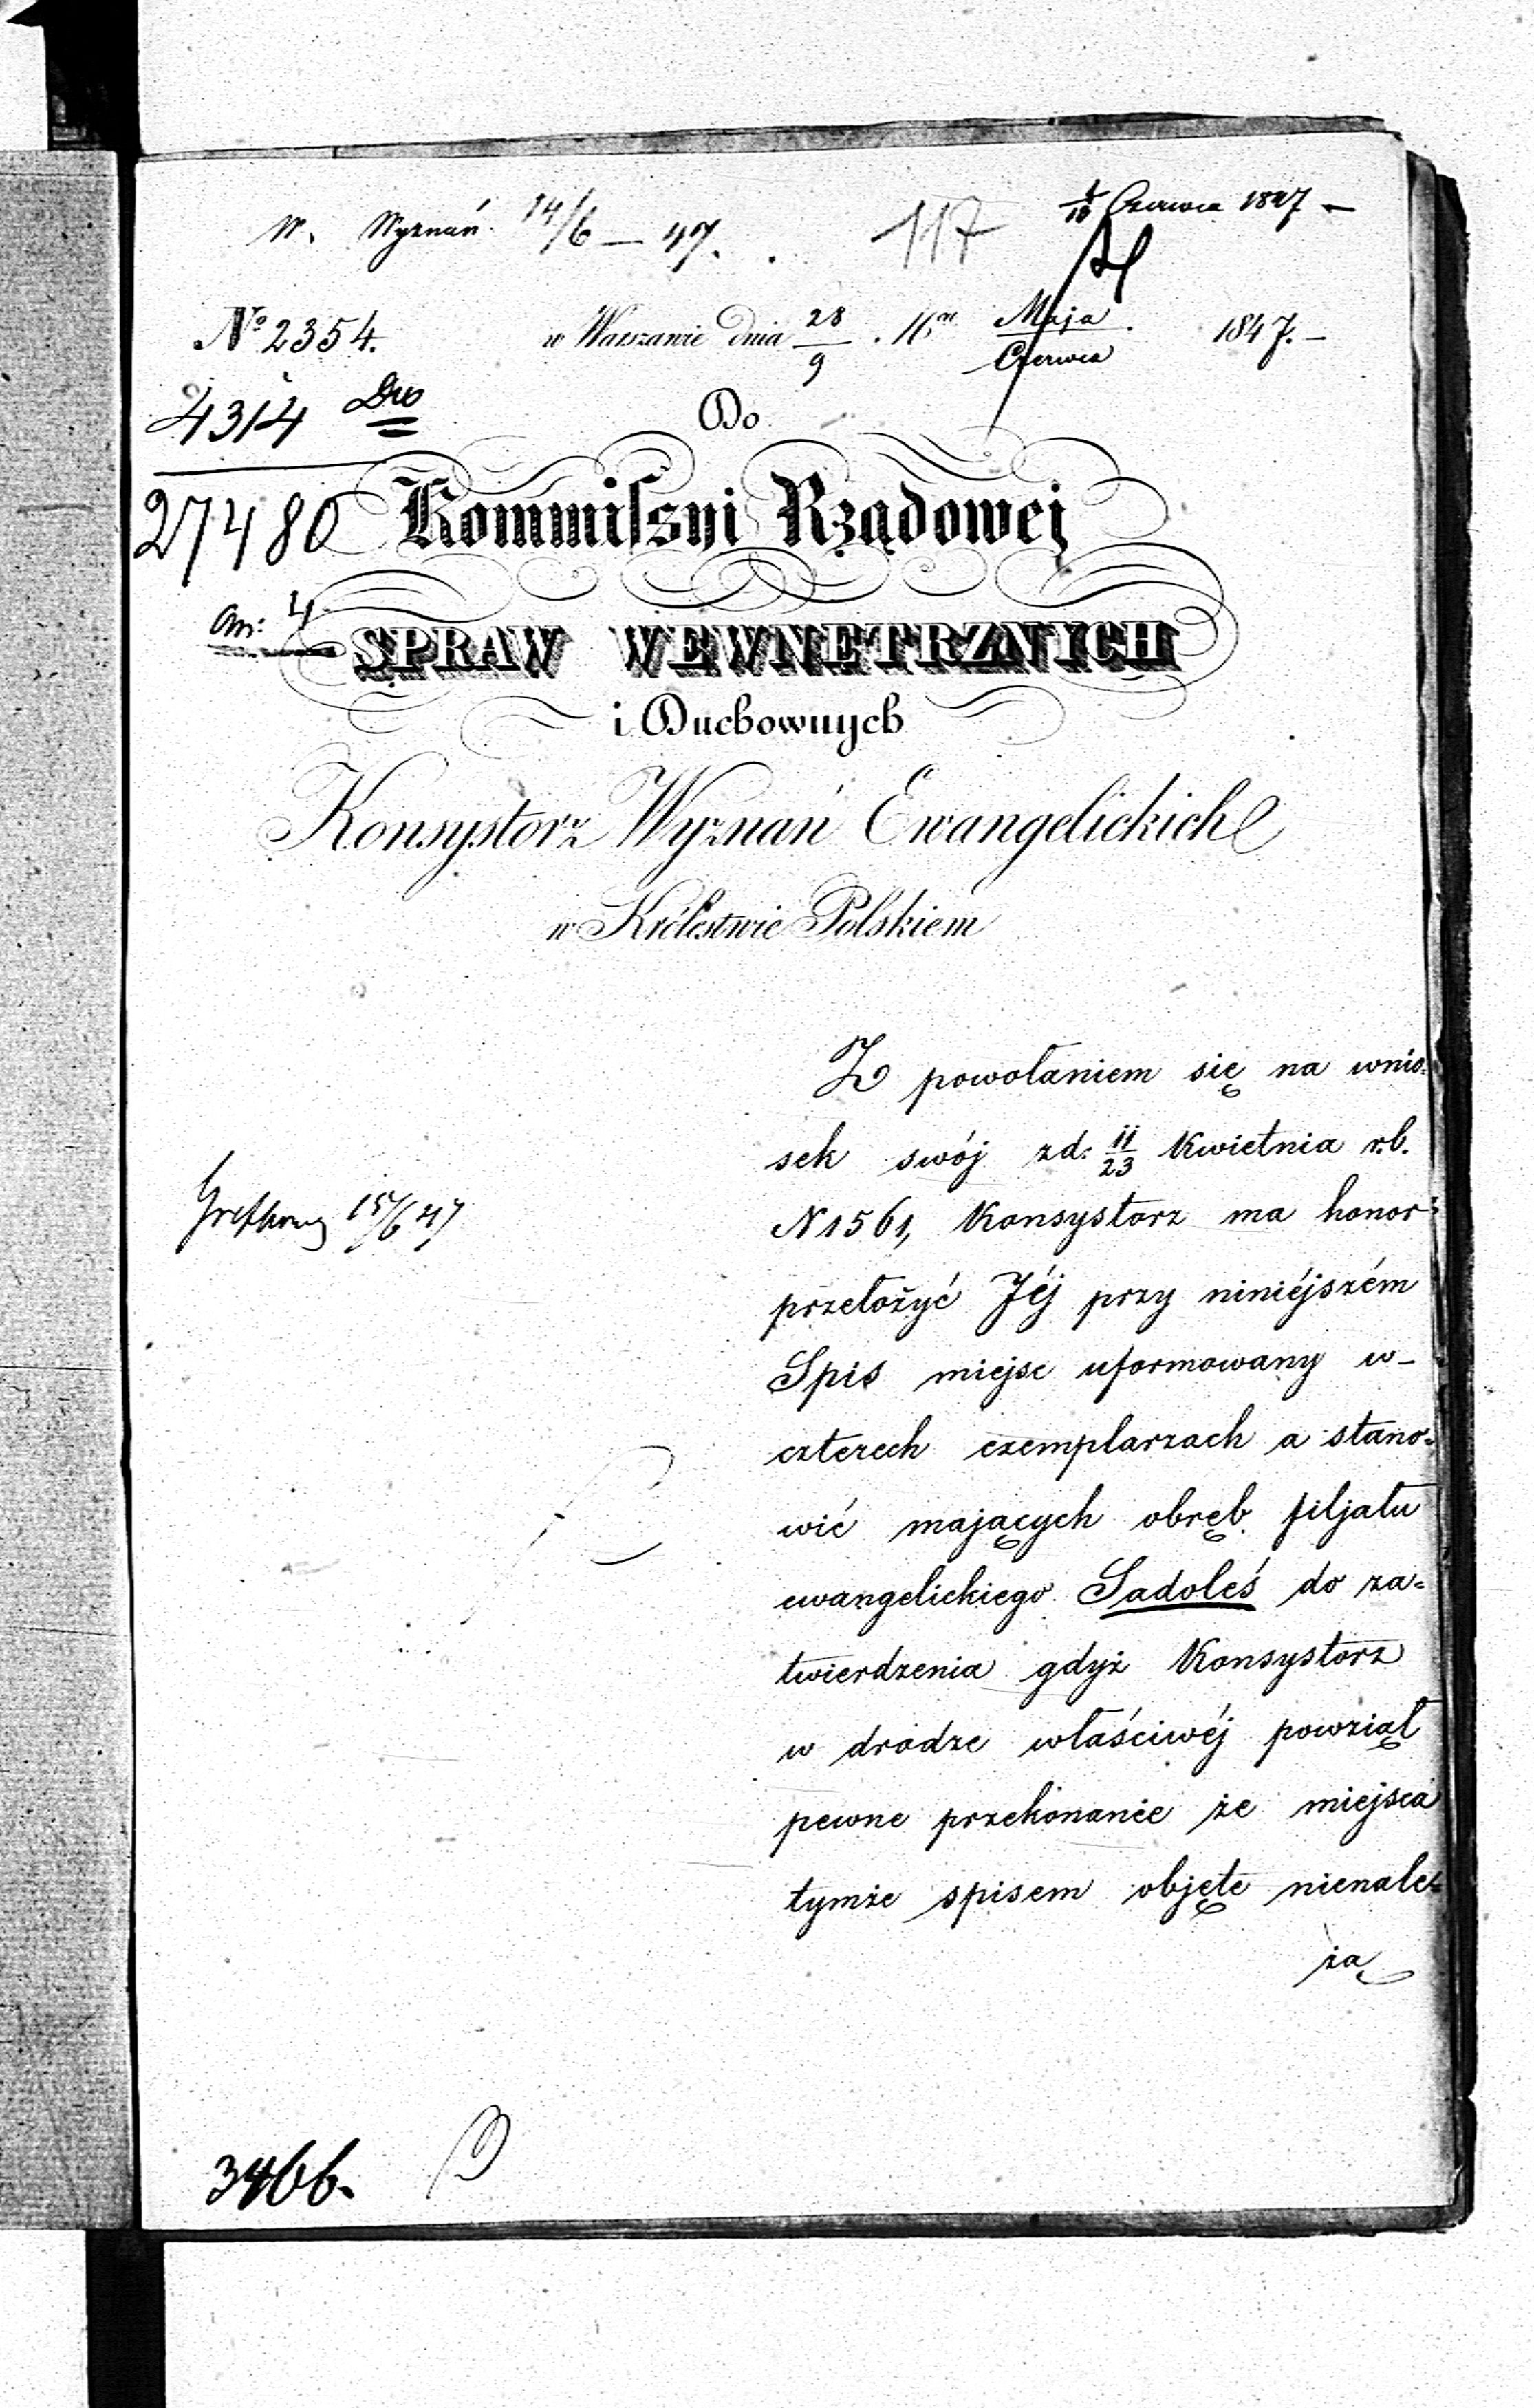 W. Wyznań 14/6 – 47.
117
1/13 Czerwca 1847 –
№ 2354.
w Warszawie dnia 28/9 . Mca Maja/Czerwca . 1847. –
4314 Dw
27480
an: 4
Do
Kommissyi Rządowej
SPRAW WEWNĘTRZNYCH
i Duchownych
Konsystorz Wyznań Ewangelickich
w Królestwie Polskiem
Z powołaniem się na wnio=
sek swój zd: 11/23 Kwietnia r.b.
N 1561, Konsystorz ma honor
przełożyć Jéj przy niniéjszém
Spis miejsc uformowany w–
czterech exemplarzach a stano=
wić mających obręb filjału
ewangelickiego Sadoleś do za=
twierdzenia gdyż Konsystorz
w drodze właściwéj powziął
pewne przekonanie że miejsca
tymże spisem objęte nienale=
żą
15/6 47
3466.